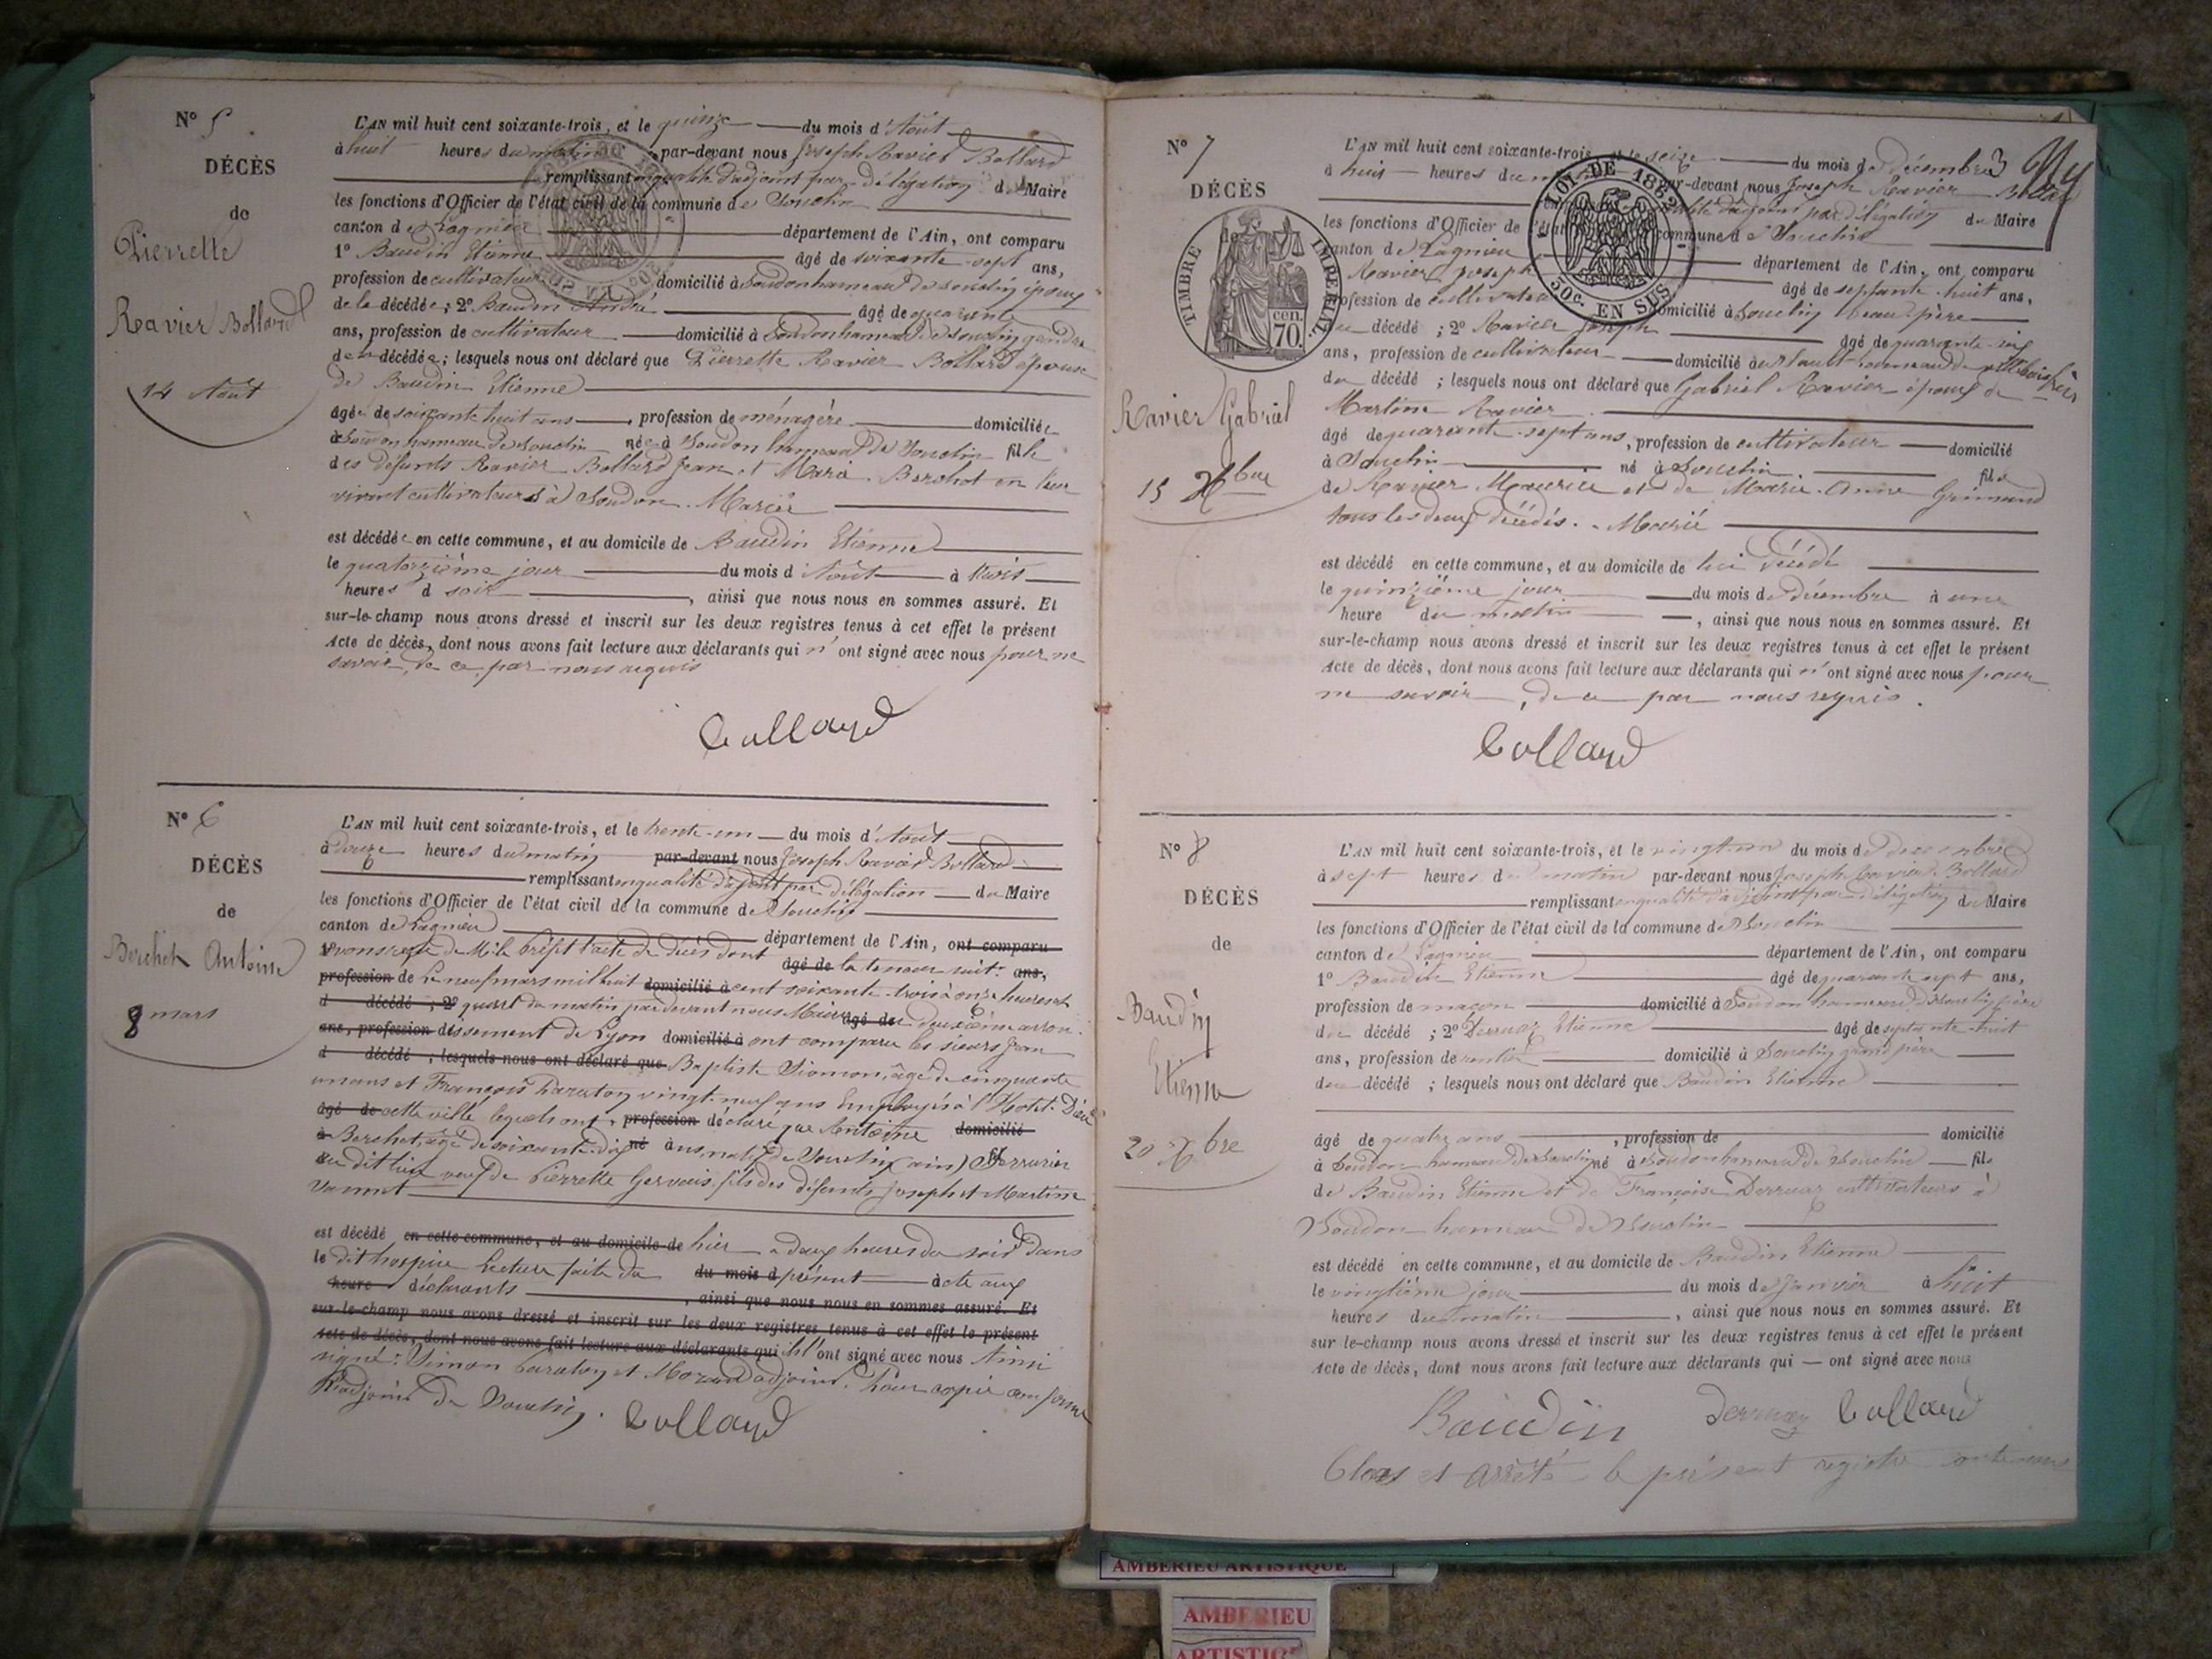 N° 5
DÉCÈS
de
Pierrette
Ravier Bollard
14 Août
L'AN mil huit cent soixante-trois, et le quinze du mois d'Août
à huit heures du matin par-devant nous Joseph Ravier Bollard
remplissant en qualité d'adjoint par délégation du Maire
les fonctions d'Officier de l'état civil de la commune de Souclin
canton de Lagnieu département de l'Ain, ont comparu
1° Baudin Etienne âgé de soixante-sept ans,
profession de cultivateur domicilié à Soudon hameau de Souclin époux
de la décédée ; 2° Baudin André âgé de quarante
ans, profession de cultivateur domicilié à Soudon hameau de Souclin gendre
de la décédée ; lesquels nous ont déclaré que Pierrette Ravier Bollard épouse
de Baudin Etienne
âgée de soixante huit ans, profession de ménagère domiciliée
à Soudon hameau de Souclin née à Soudon hameau de Souclin fille
des défunts Ravier Bollard Jean et Marie Berchot en leur
vivant cultivateurs à Soudon. Mariée
est décédée en cette commune, et au domicile de Baudin Etienne
le quatorzième jour du mois d'Août à trois
heures d soir, ainsi que nous nous en sommes assuré. Et
sur-le-champ nous avons dressé et inscrit sur les deux registres tenus à cet effet le présent
Acte de décès, dont nous avons fait lecture aux déclarants qui n'ont signé avec nous pour ne
savoir, de ce par nous requis
Bollard
N° 6
DÉCÈS
de
Berchet Antoine
8 mars
L'AN mil huit cent soixante-trois, et le trente-un du mois d'Août
à douze heures du matin par-devant nous Joseph Ravier Bollard
remplissant en qualité d'adjoint par délégation du Maire
les fonctions d'Officier de l'état civil de la commune de Souclin
canton de Lagnieu département de l'Ain, ont comparu
avons de décès dont âgé de la teneur suit. ans,
profession de Le neuf mars mil huit domicilié à cent soixante-trois à onze heures et
d décédé ; 2° quart du matin par devant nous Maire âgé de du deuxième arron-
ans, profession dissement de Lyon domicilié à ont comparu les sieurs Jean
d décédé ; lesquels nous ont déclaré que Baptiste Simon, âgé de cinquante
un ans et François vingt-neuf ans Employés à l'Hotel-Dieu
âgé de cette ville lesquels ont, profession déclaré que Antoine domicilié
à Berchet, âgé de soixante-dix né ans, natif de Souclin (ain)
au dit lieu veuf de Pierrette Gervais, fils des défunts Joseph et Martine
est décédé en cette commune, et au domicile de hier à deux heures du soir dans
le dit hospice Lecture faite du du mois d présent à acte aux
heure déclarants, ainsi que nous nous en sommes assuré. Et
sur-le-champ nous avons dressé et inscrit sur les deux registres tenus à cet effet le présent
Acte de décès, dont nous avons fait lecture aux déclarants qui ils l'ont signé avec nous Ainsi
signé : Simon et adjoint. Pour copie conforme
l'adjoint de Souclin. Bollard
3
N° 7
DÉCÈS
de
TIMBRE IMPÉRIAL
70 cen.
Ravier Gabriel
15 Xbre
LOI DE 1862
50c. EN SUS
L'AN mil huit cent soixante-trois, et le seize du mois de décembre
à huit heures du par-devant nous Joseph Ravier Bollard
en qualité d'adjoint par délégation du Maire
les fonctions d'Officier de l'état commune de Souclin
canton de Lagnieu département de l'Ain, ont comparu
Ravier Joseph âgé de septante-huit ans,
profession de cultivateur domicilié à Souclin beau père
du décédé ; 2° Ravier Joseph âgé de quarante-six
ans, profession de cultivateur domicilié à hameau de
du décédé ; lesquels nous ont déclaré que Gabriel Ravier époux de
Martine Ravier
âgé de quarante-sept ans, profession de cultivateur domicilié
à Souclin né à Souclin fils
de Ravier Maurice et de Marie-Anne Grimaud
tous les deux décédés. Marié
est décédé en cette commune, et au domicile de lui décédé
le quinzième jour du mois de décembre à une
heure du matin, ainsi que nous nous en sommes assuré. Et
sur-le-champ nous avons dressé et inscrit sur les deux registres tenus à cet effet le présent
Acte de décès, dont nous avons fait lecture aux déclarants qui n'ont signé avec nous pour
ne savoir, de ce par nous requis.
Bollard
N° 8
DÉCÈS
de
Baudin
Etienne
20 Xbre
L'AN mil huit cent soixante-trois, et le vingt-un du mois de décembre
à sept heures du matin par-devant nous Joseph Ravier Bollard
remplissant en qualité d'adjoint par délégation du Maire
les fonctions d'Officier de l'état civil de la commune de Souclin
canton de Lagnieu département de l'Ain, ont comparu
1° Baudin Etienne âgé de quarante sept ans,
profession de maçon domicilié à Soudon hameau de Souclin père
du décédé ; 2° Derruaz Etienne âgé de septante-huit
ans, profession de rentier domicilié à Souclin grand père
du décédé ; lesquels nous ont déclaré que Baudin Etienne
âgé de quatre ans, profession de domicilié
à Soudon hameau de Souclin né à Soudon hameau de Souclin fils
de Baudin Etienne et de Françoise Derruaz cultivateurs à
Soudon hameau de Souclin
est décédé en cette commune, et au domicile de Baudin Etienne
le vingtième jour du mois de Janvier à huit
heures du matin, ainsi que nous nous en sommes assuré. Et
sur-le-champ nous avons dressé et inscrit sur les deux registres tenus à cet effet le présent
Acte de décès, dont nous avons fait lecture aux déclarants qui — ont signé avec nous
Baudin Derruaz Bollard
Clos et arrêté le présent registre contenant
AMBERIEU ARTISTIQUE
AMBERIEU
ARTISTIQUE